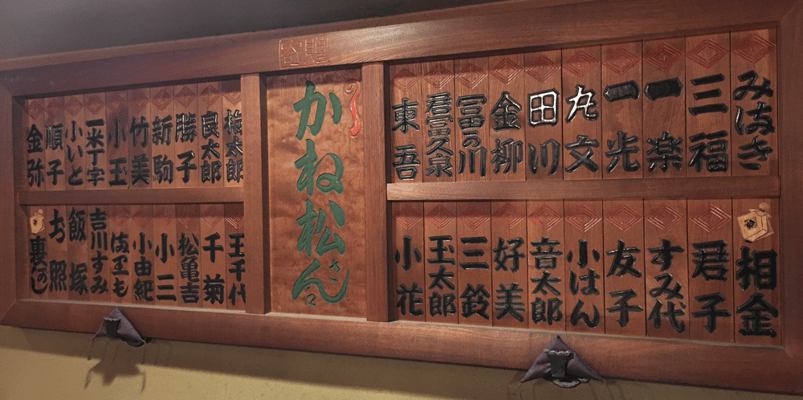 みはき
三福
一楽
一光
丸文
田川
金柳
冨の川
君富久泉
東吾
相金
君子
すみ代
友子
小はん
音太郎
好美
三鈴
玉太郎
小花
かね松さん江
桃太郎
良太郎
勝子
新駒
竹美
小玉
一米丁字
小いと
順子
金弥
玉千代
千菊
松亀吉
小三
小由紀
吉川すみ
飯塚
お照